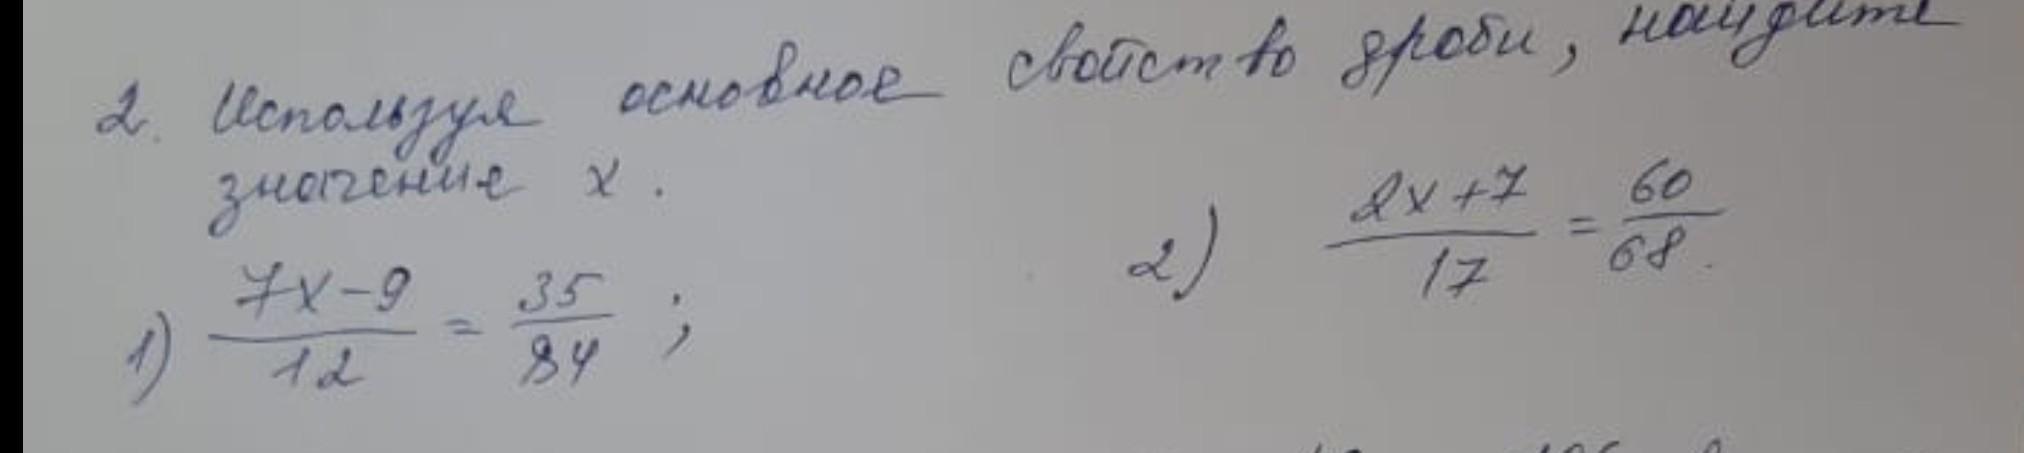 2. Используя основное свойство дроби, найдите
значение x.
1) (7x-9)/12 = 35/84 ;
2) (2x+7)/17 = 60/68.